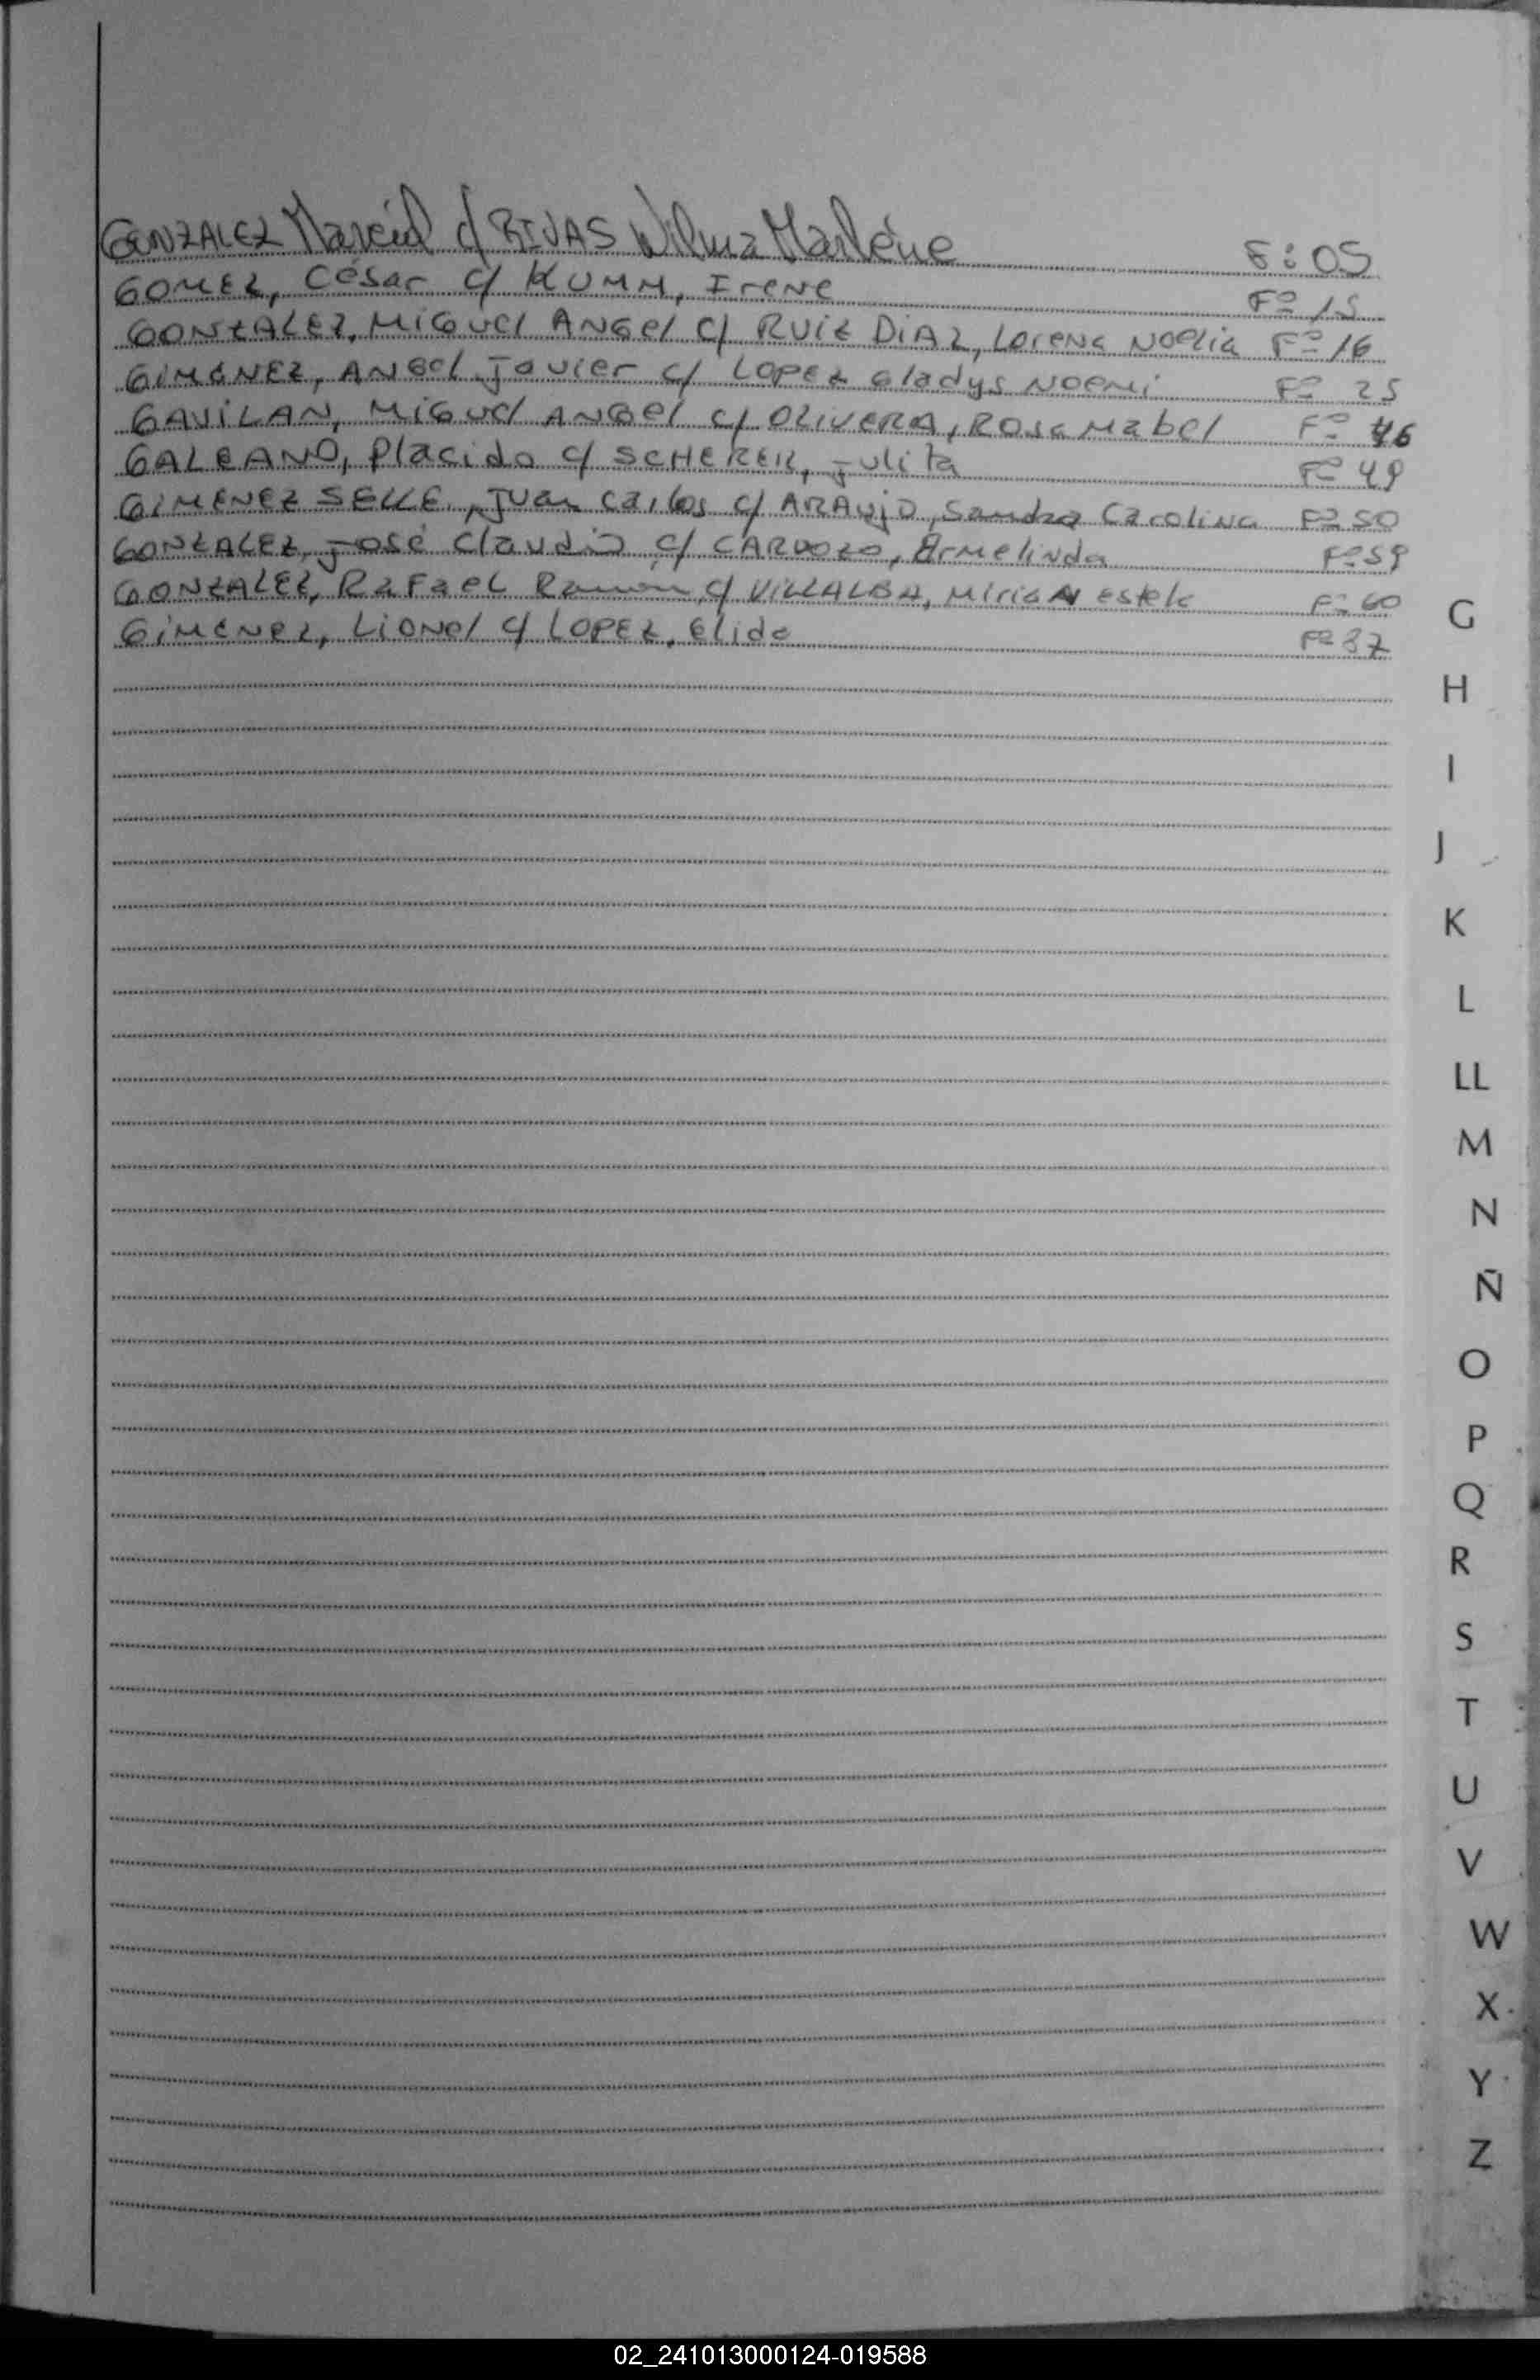 GONZALEZ Marcial c/ RIVAS Wilma Marlene F: 05
GOMEZ, César c/ KUMM, Irene Fº 15
GONZALEZ, Miguel Angel c/ RUIZ DIAZ, Lorena Noelia Fº 16
GIMÉNEZ, Angel Javier c/ LOPEZ Gladys Noemi Fº 25
GAVILAN, Miguel Angel c/ OLIVERA, Rosa Mabel Fº 46
GALEANO, Placido c/ SCHERER, Julita Fº 49
GIMENEZ SELLE, Juan Carlos c/ ARAUJO, Sandra Carolina Fº 50
GONZALEZ, José Claudio c/ CARDOZO, Ermelinda Fº 59
GONZALEZ, Rafael Ramon c/ VILLALBA, Mirian Estela Fº 60
GIMENEZ, Lionel c/ LOPEZ, Elida Fº 87
G
H
I
J
K
L
LL
M
N
Ñ
O
P
Q
R
S
T
U
V
W
X
Y
Z
02_241013000124-019588